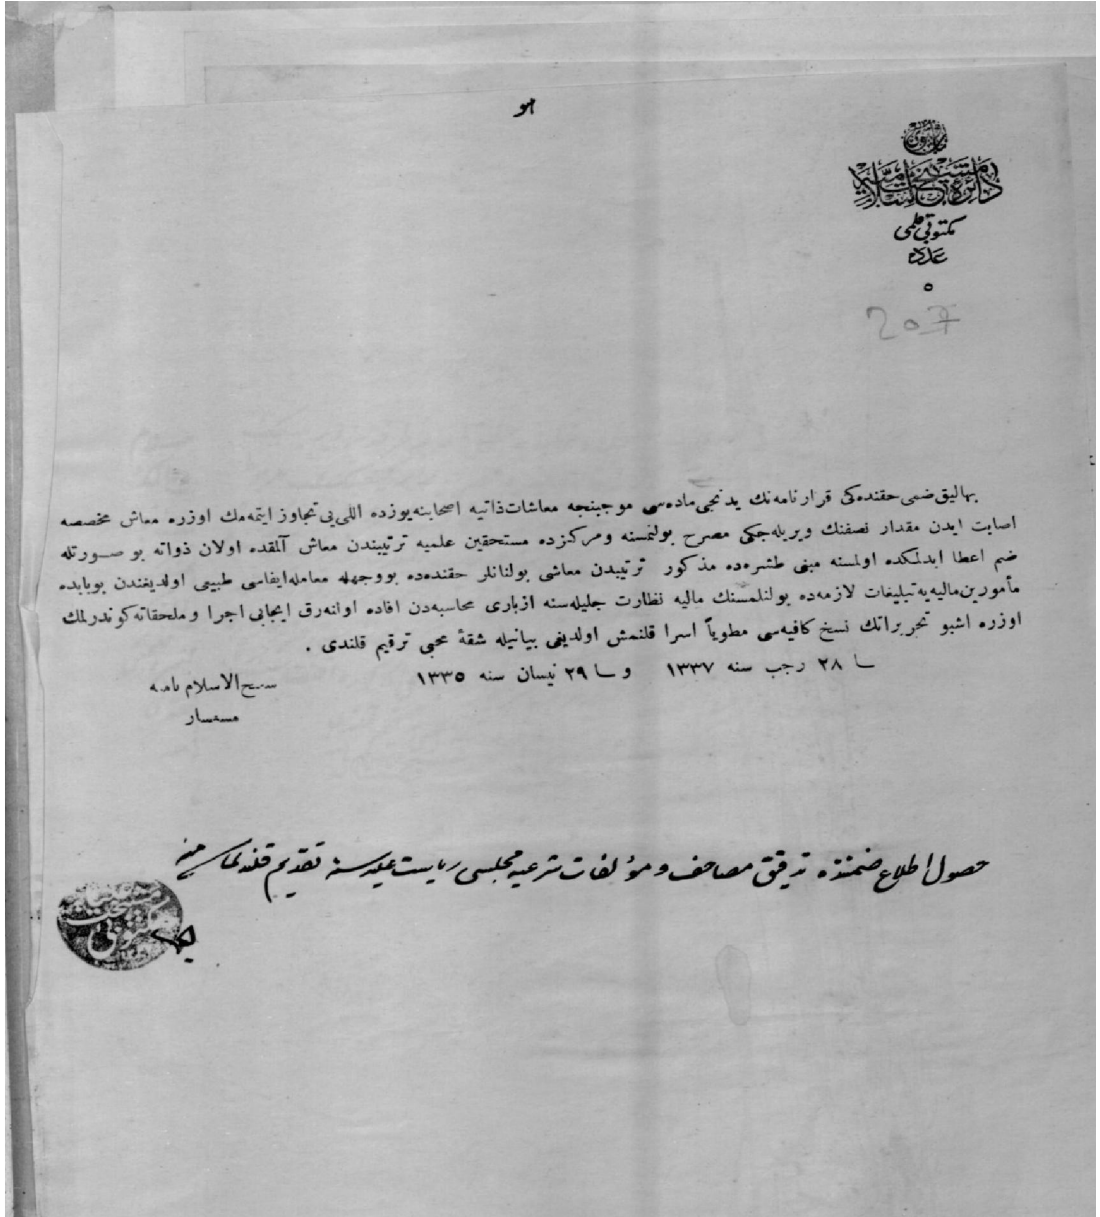 هو
باب فتوى
دائرة مشيخت اسلاميه
مكتوبى قلمى
عدد
٥
207
بهاليق ضمى حقنده كى قرارنامه نك يدنجى ماده سى موجبنجه معاشات ذاتيه اصحابنه يوزده اللى يى تجاوز ايتمه مك اوزره معاش مخصصه
اصابت ايدن مقدار نصفنك ويريله جكى مصرح بولنمسنه ومركزده مستحقين علميه ترتيبندن معاش آلمقده اولان ذواته بو صورتله
ضم اعطا ايدلمكده اولمسنه مبنى طشره ده مذكور ترتيبدن معاشى بولنانلر حقنده ده بووجهله معامله ايفاسى طبيعى اولديغندن بوبابده
مأمورين ماليه يه تبليغات لازمه ده بولنلمسنك ماليه نظارت جليله سنه ازبارى محاسبه دن افاده اولنه رق ايجابى اجرا وملحقاته كوندرلمك
اوزره اشبو تحريراتك نسخ كافيه سى مطوياً اسرا قلنمش اولديغى بيانيله شقۀ محبى ترقيم قلندى .
سا ٢٨ رجب سنه ١٣٣٧ و سا ٢٩ نيسان سنه ١٣٣٥
شيخ الاسلام نامنه
مستشار
حصول اطلاع ضمننده تدقيق مصاحف ومؤلفات شرعيه مجلسى رياست عليه سنه تقديم قلندى